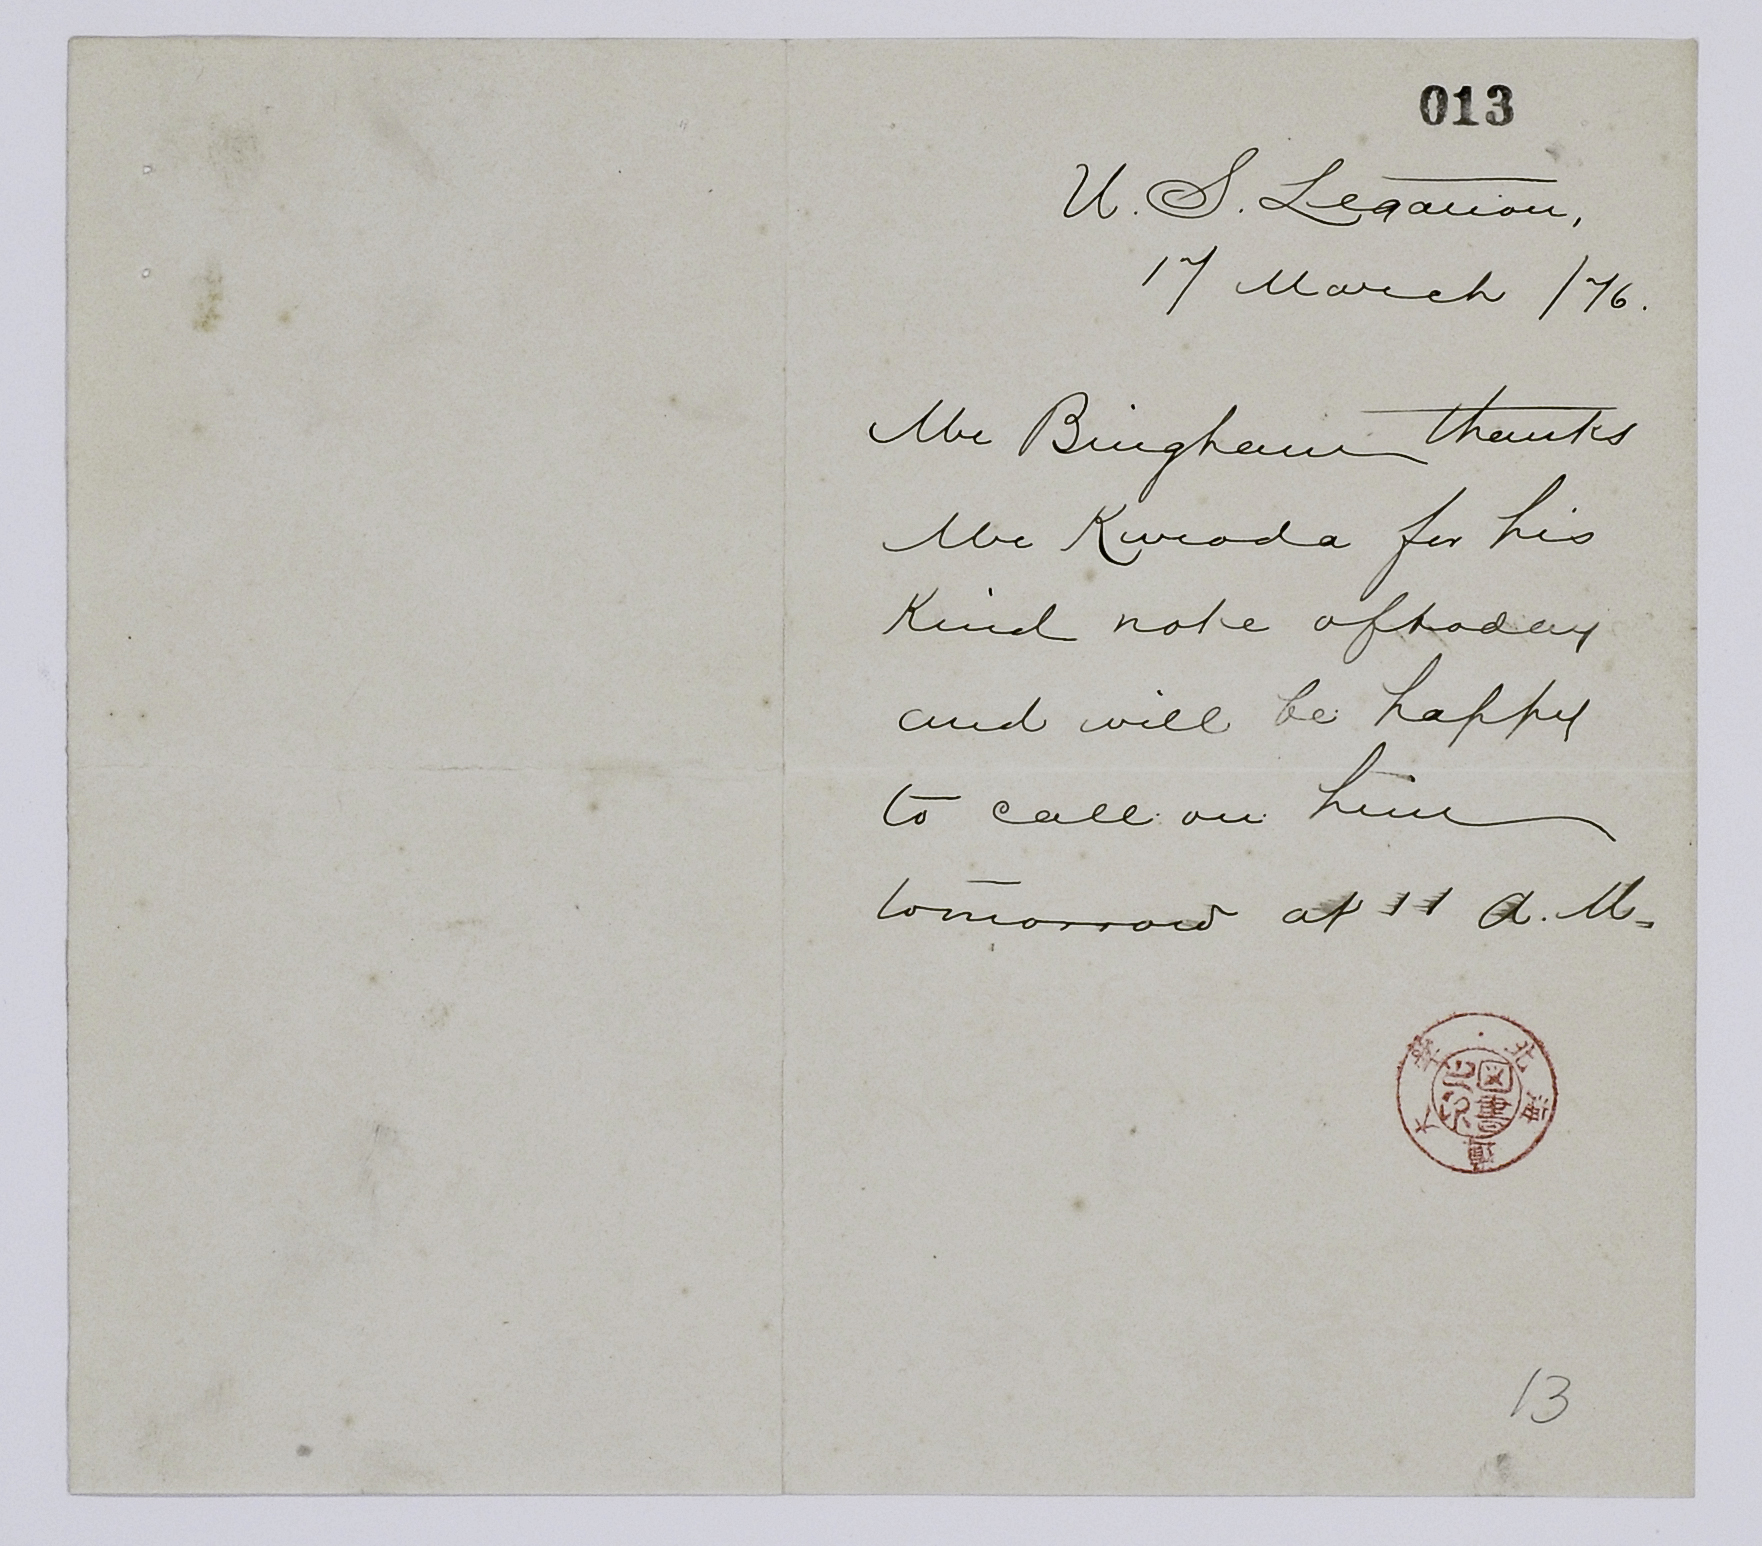 013
U. S. Legation,
17 March /76.
Mr Bingham thanks
Mr Kuroda for his
Kind note of today
and will be happy
to call on him
tomorrow at 11 A.M.
北海道大學
図書
13